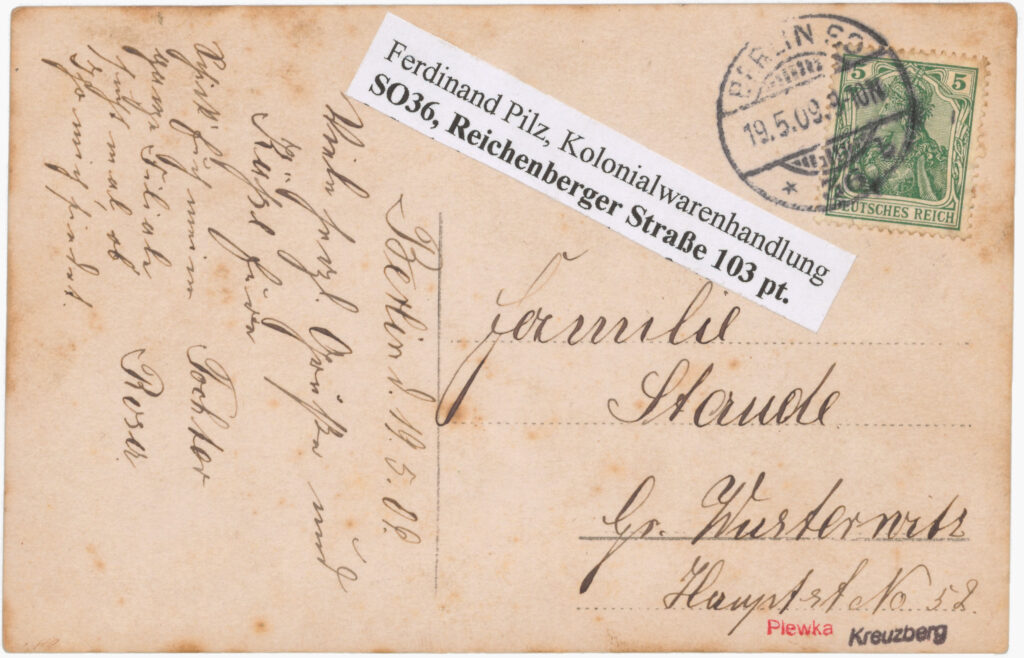 Ferdinand Pilz, Kolonialwarenhandlung
SO36, Reichenberger Straße 103 pt.
BERLIN SO
19.5.09.9-10N
5 5
DEUTSCHES REICH
Berlin d. 19.5.09.
Viele herzl. Grüße und
Küße
Tochter
Rosa
ganze Filiale
sucht mal, ob
Ihr mich findet
Familie
Staude
Gr. Wusterwitz
Hauptst No. 52
Plewka Kreuzberg